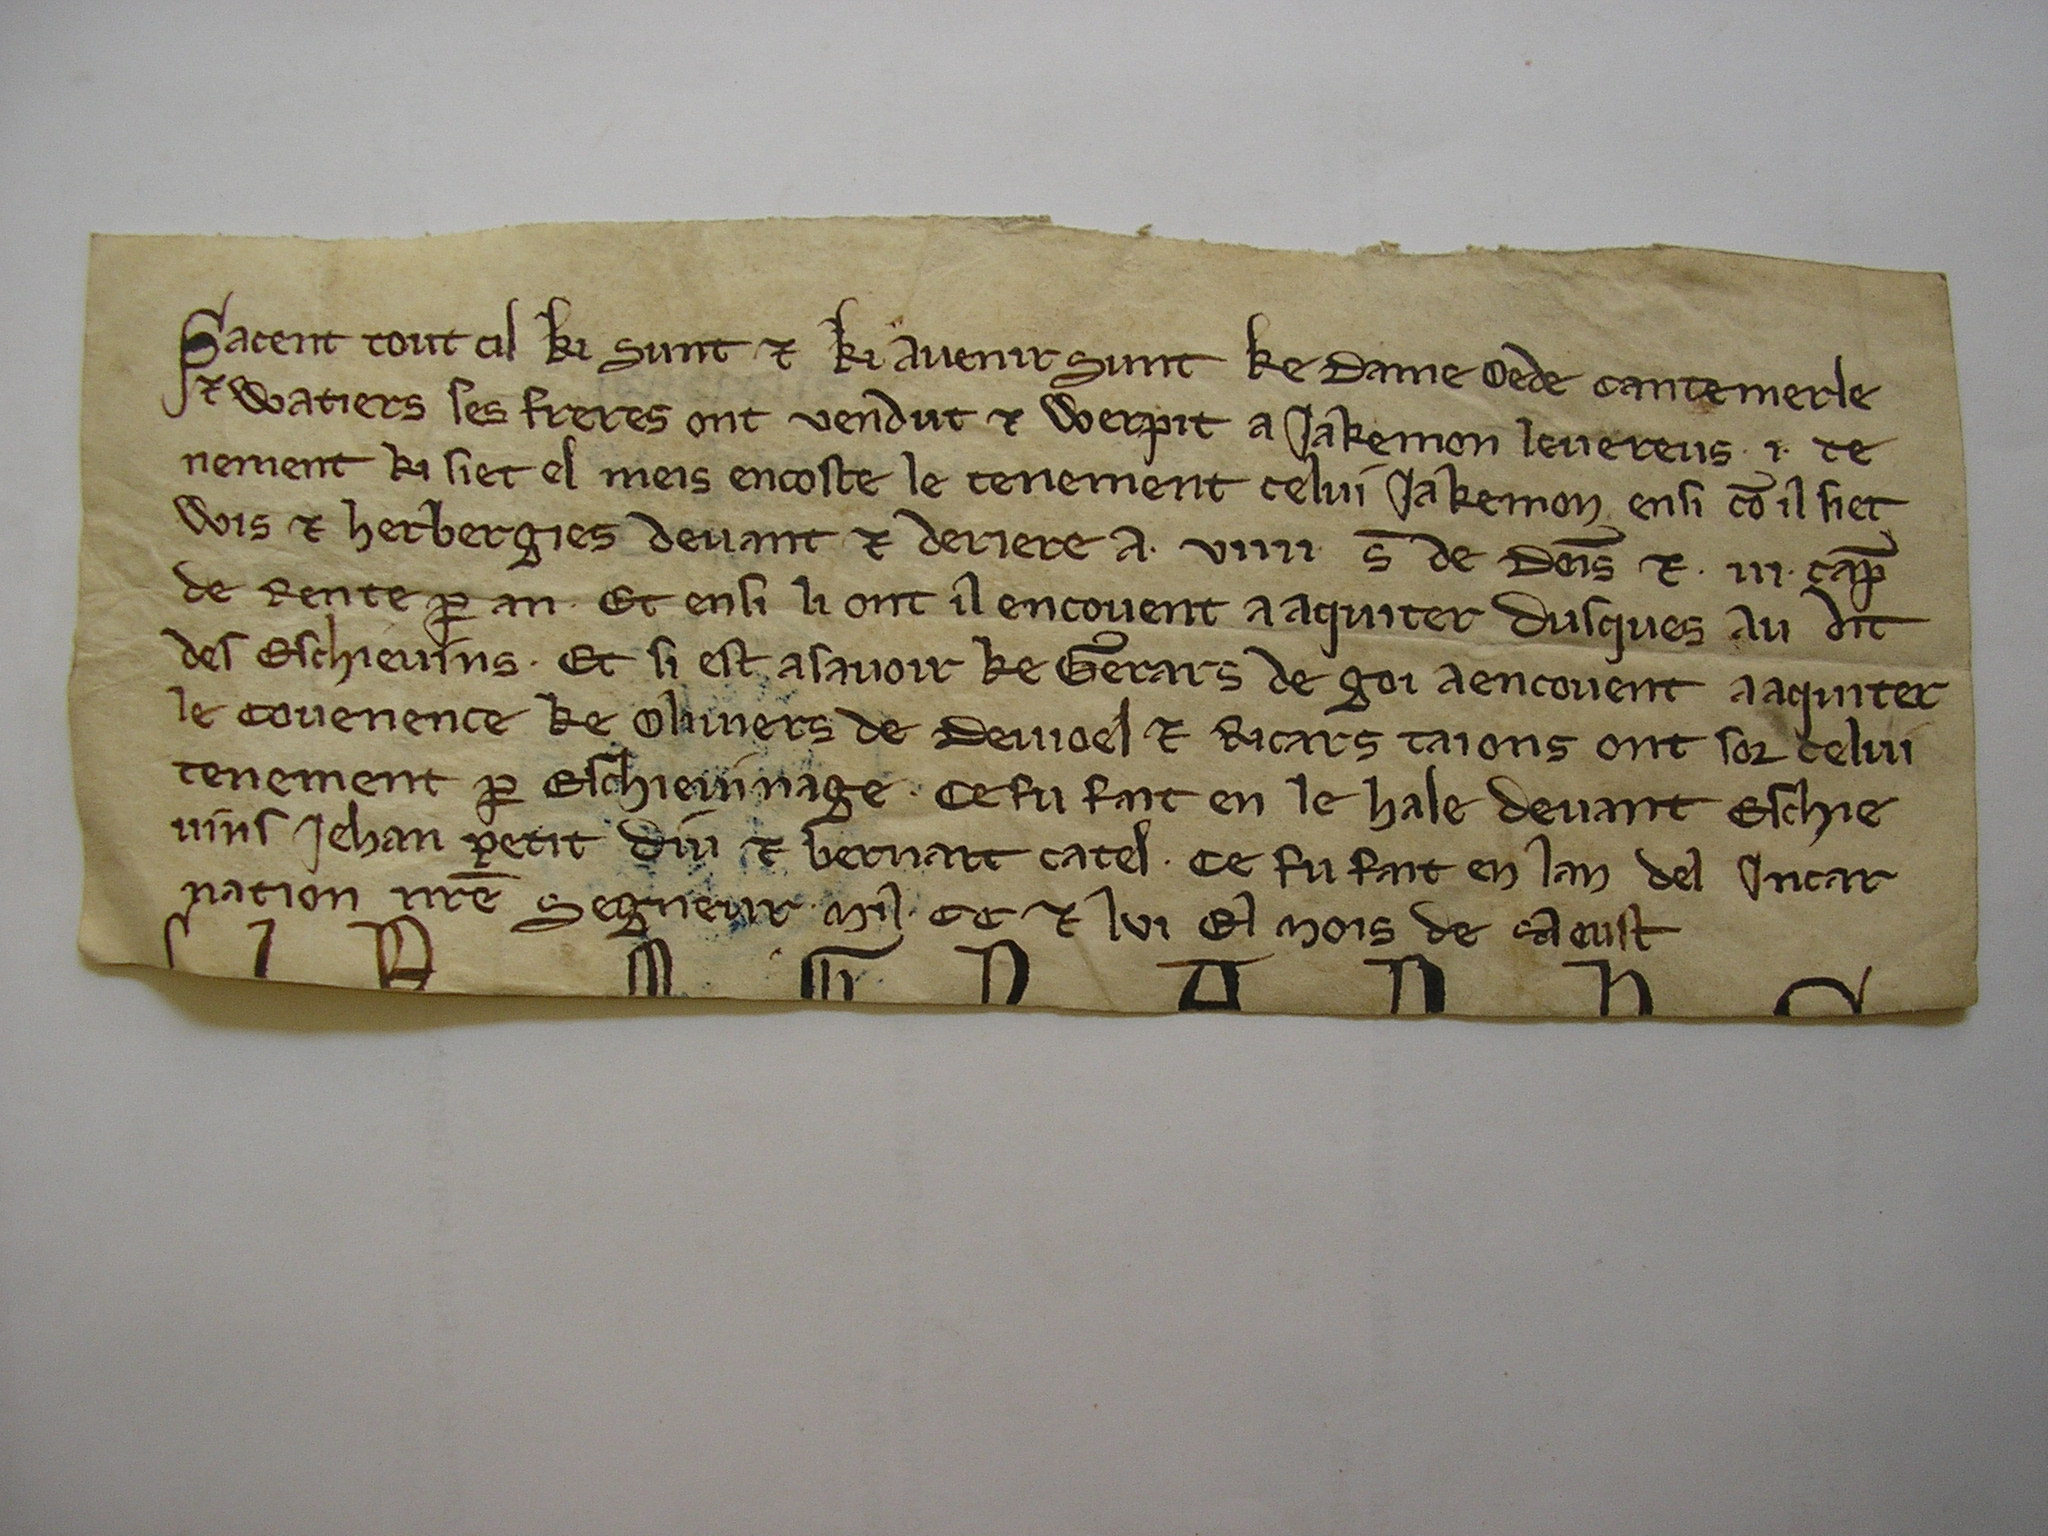 Sacent tout cil ki sunt ⁊ ki avenir sunt ke dame Oede cantemerle
⁊ Watiers ses freres ont vendut ⁊ Werpit a Jakemon levereus · i · te
nement ki siet el meis encoste le tenement celui Jakemon ensi cō il siet
Wis ⁊ herbergies devant ⁊ deriere a · viiii · s̄ de den̄s ⁊ · iii · cap̄
de Rente ꝑ an · Et ensi li ont il encovent a aquiter dusques au dit
des Eschievins · Et si est asavoir ke Gerars de goi a encovent a aquiter
le covenence ke Olivers de Devioel ⁊ Ricars taions ont sor celui
tenement ꝑ Eschievinage · Ce fu fait en le hale devant Eschie
vins Jehan petit diu ⁊ bernart catel · Ce fu fait en lan del Incar
nation nr̄e Segneur · mil · CC ⁊ lvi El mois de